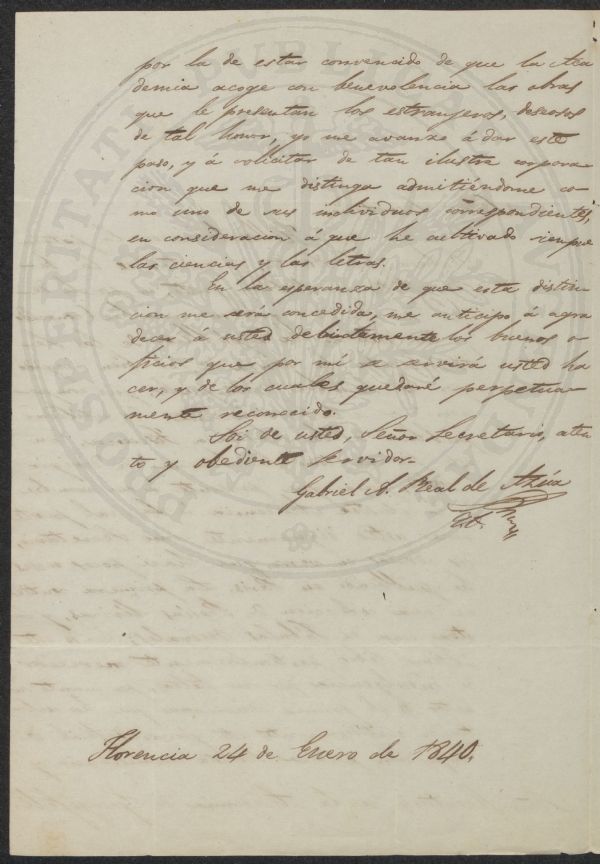 por la de estar convencido de que la Aca
demia acoge con benevolencia las obras
que le presentan los estranjeros, deseosos
de tal honor, yo me avanzo á dar este
paso, y á solicitar de tan ilustre corpora
cion que me distinga admitiéndome co
mo uno de sus individuos correspondientes,
en consideracion á que he cultivado siempre
las ciencias y las letras.
En la esperanza de que esta distin
cion me será concedida, me anticipo á agra
decer á usted debidamente los buenos o
ficios que por mí se servirá usted ha
cer, y de los cuales quedaré perpetua
mente reconocido.
Soi de usted, Señor Secretario, aten
to y obediente servidor
Gabriel A. Real de Azúa
Florencia 24 de Enero de 1840.
PROSPERITATI PUBLICAE